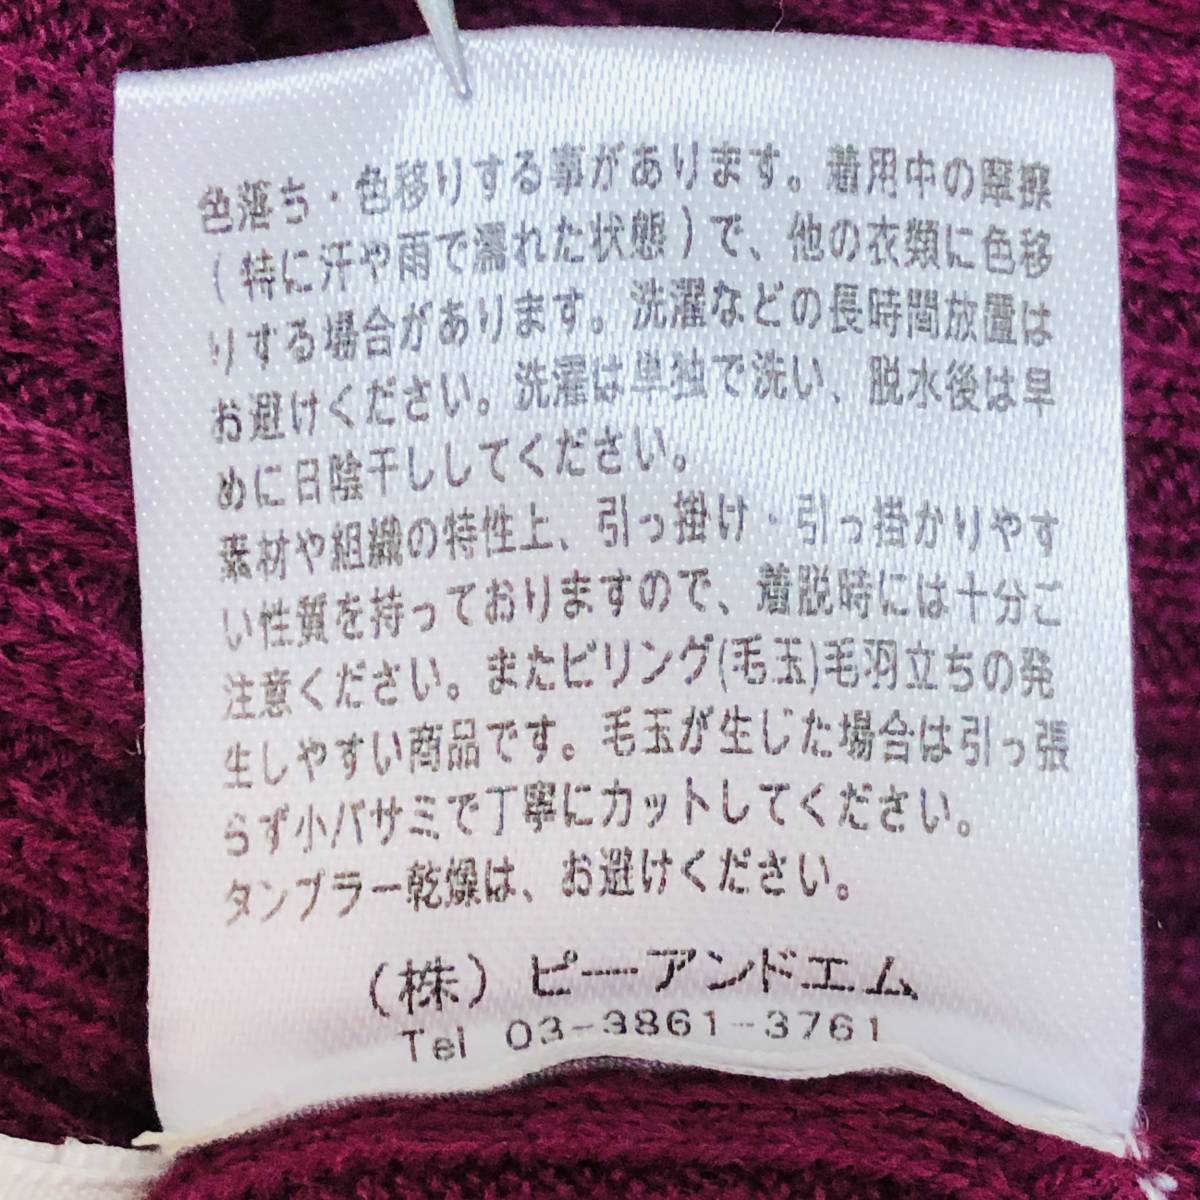 色落ち・色移りする事があります。着用中の摩擦
(特に汗や雨で濡れた状態)で、他の衣類に色移
りする場合があります。洗濯などの長時間放置は
お避けください。洗濯は単独で洗い、脱水後は早
めに日陰干ししてください。
素材や組織の特性上、引っ掛け・引っ掛かりやす
い性質を持っておりますので、着脱時には十分ご
注意ください。またピリング(毛玉)毛羽立ちの発
生しやすい商品です。毛玉が生じた場合は引っ張
らず小バサミで丁寧にカットしてください。
タンブラー乾燥は、お避けください。
(株)ピーアンドエム
Tel 03-3861-3761